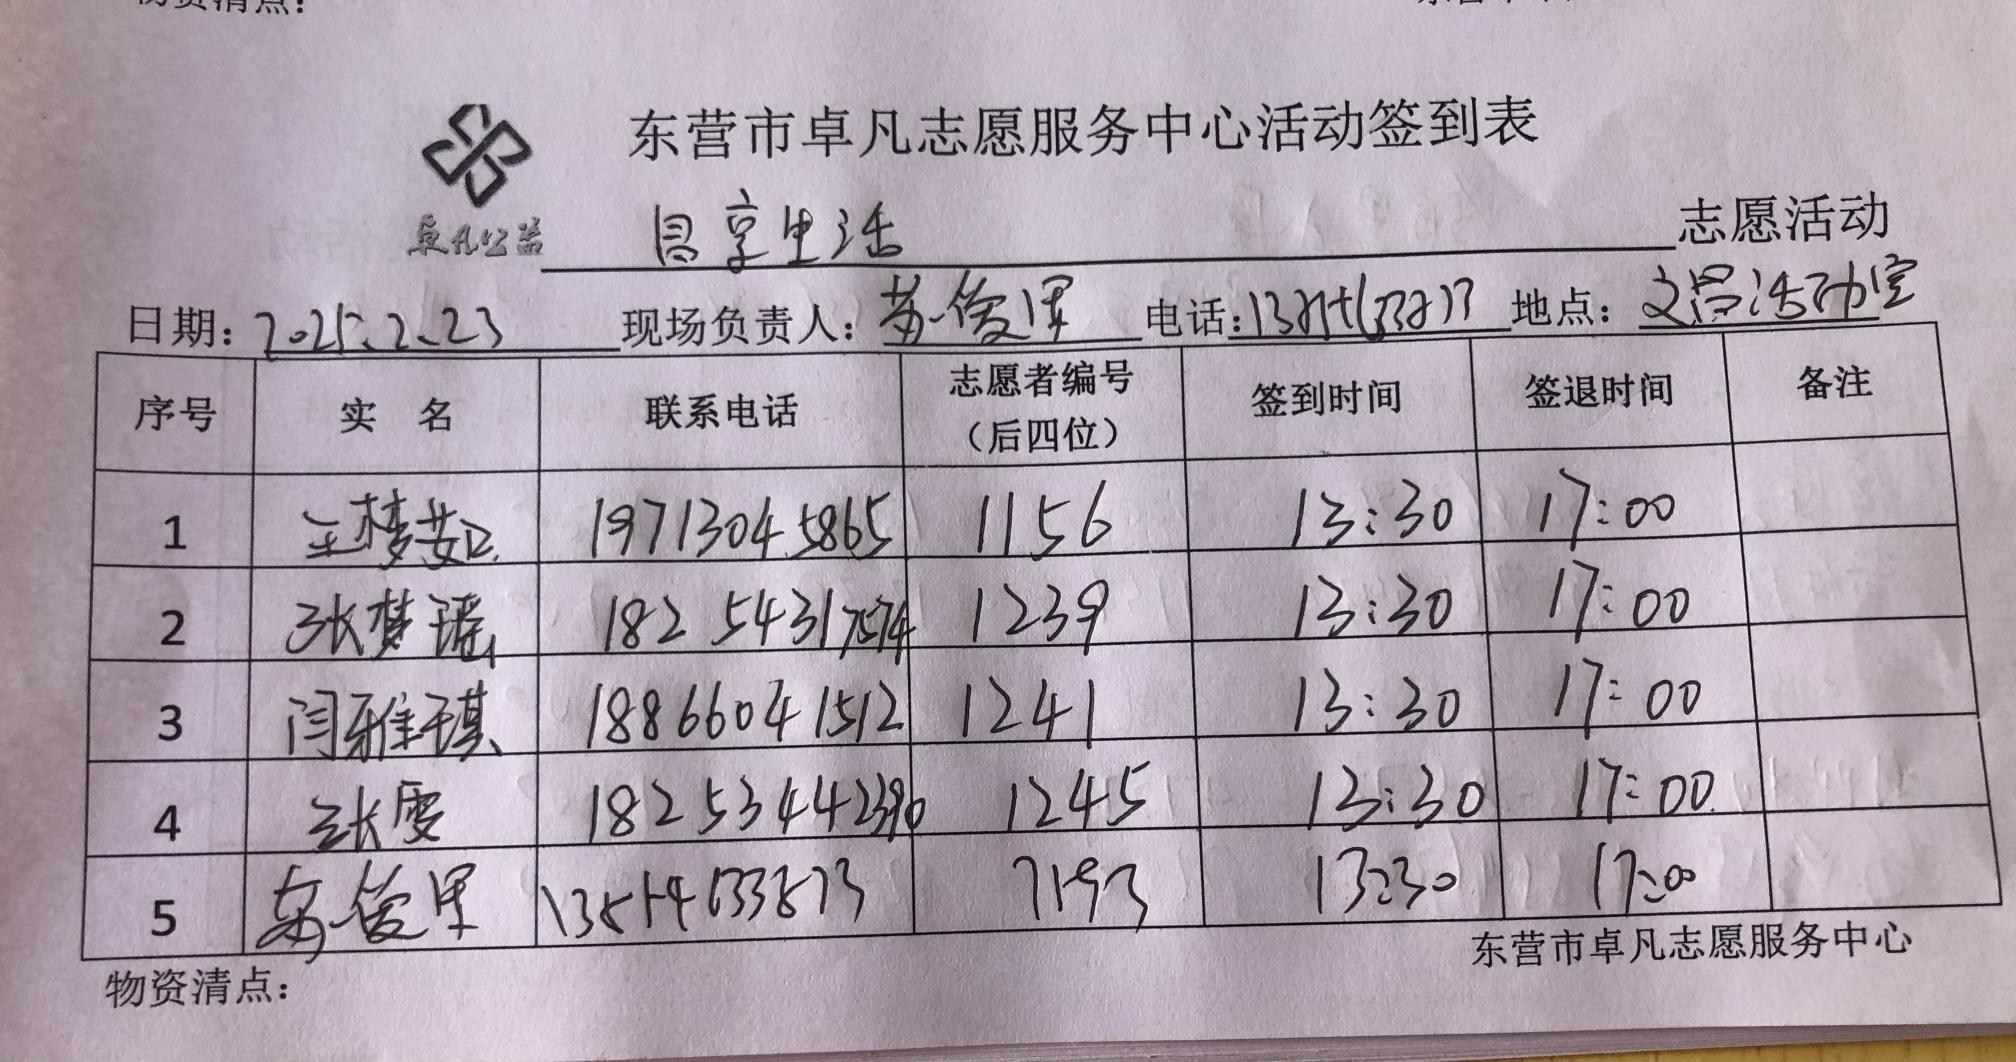 物资清点：
东营市卓凡志愿服务中心活动签到表
卓凡公益
昌享生活 志愿活动
日期：2025.2.23 现场负责人：苏俊军 电话： 地点：文昌活动室
序号 实 名 联系电话 志愿者编号（后四位） 签到时间 签退时间 备注
1 王梦茹 19713045865 1156 13:30 17:00
2 张梦瑶 18254317574 1239 13:30 17:00
3 闫雅琪 18866041512 1241 13:30 17:00
4 张雯 18253442390 1245 13:30 17:00
5 苏俊军 7193 13:30 17:00
东营市卓凡志愿服务中心
物资清点：